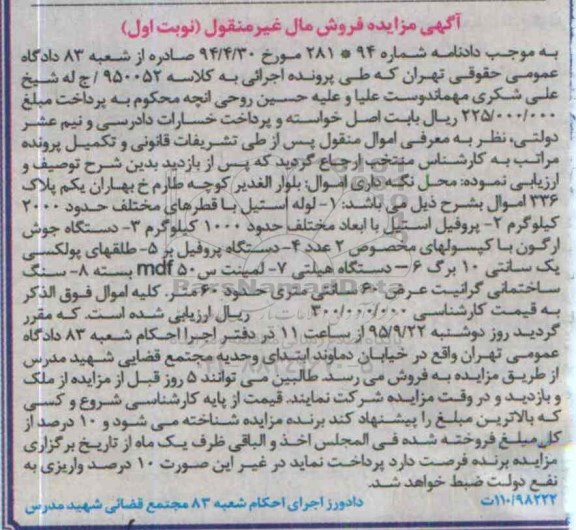 آگهی مزایده فروش مال غیرمنقول (نوبت اول)
به موجب دادنامه شماره ۹۴ * ۲۸۱ مورخ ۹۴/۴/۳۰ صادره از شعبه ۸۳ دادگاه
عمومی حقوقی تهران که طی پرونده اجرائی به کلاسه ۹۵۰۰۵۲ / ج له شیخ
علی شکری مهماندوست علیا و علیه حسین روحی انچه محکوم به پرداخت مبلغ
۲۲۵/۰۰۰/۰۰۰ ریال بابت اصل خواسته و پرداخت خسارات دادرسی و نیم عشر
دولتی، نظر به معرفی اموال منقول پس از طی تشریفات قانونی و تکمیل پرونده
مراتب به کارشناس منتخب ارجاع گردید که پس از بازدید بدین شرح توصیف و
ارزیابی نموده: محل نگه داری اموال: بلوار الغدیر کوچه طارم خ بهاران یکم پلاک
۳۳۶ اموال بشرح ذیل می باشد: ۱- لوله استیل با قطرهای مختلف حدود ۲۰۰۰
کیلوگرم ۲- پروفیل استیل با ابعاد مختلف حدود ۱۰۰۰ کیلوگرم ۳- دستگاه جوش
ارگون با کپسولهای مخصوص ۲ عدد ۴- دستگاه پروفیل بر ۵- طلقهای پولکسی
یک سانتی ۱۰ برگ ۶- دستگاه هیلتی ۷- لمینت س ۵۰ mdf بسته ۸- سنگ
ساختمانی گرانیت عرض ۶۰ سانتی متری حدود ۶۰ متر. کلیه اموال فوق الذکر
به قیمت کارشناسی ۳۰۰/۰۰۰/۰۰۰ ریال ارزیابی شده است. که مقرر
گردید روز دوشنبه ۹۵/۹/۲۲ از ساعت ۱۱ در دفتر اجرا احکام شعبه ۸۳ دادگاه
عمومی تهران واقع در خیابان دماوند ابتدای وحدیه مجتمع قضایی شهید مدرس
از طریق مزایده به فروش می رسد. طالبین می توانند ۵ روز قبل از مزایده از ملک
و بازدید و در وقت مزایده شرکت نمایند. قیمت از پایه کارشناسی شروع و کسی
که بالاترین مبلغ را پیشنهاد کند برنده مزایده شناخته می شود و ۱۰ درصد از
کل مبلغ فروخته شده فی المجلس اخذ و الباقی ظرف یک ماه از تاریخ برگزاری
مزایده برنده فرصت دارد پرداخت نماید در غیر این صورت ۱۰ درصد واریزی به
نفع دولت ضبط خواهد شد.
۱۱۰/۹۸۲۲۲ت دادورز اجرای احکام شعبه ۸۳ مجتمع قضائی شهید مدرس
ParsNamadData